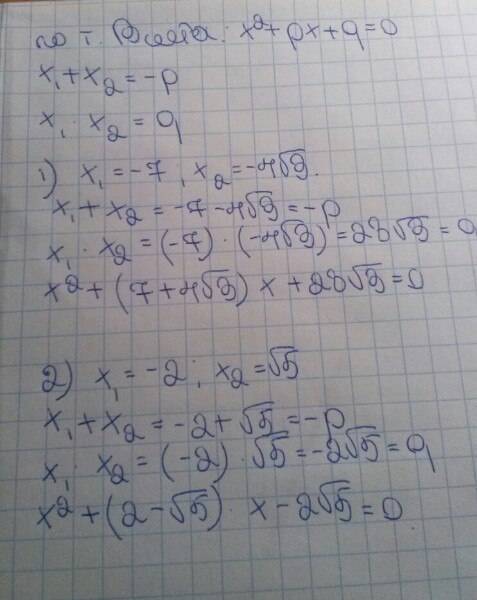 по т. Виета: x²+px+q=0
x₁+x₂=-p
x₁·x₂=q
1) x₁=-7; x₂=-4√3.
x₁+x₂=-7-4√3=-p
x₁·x₂=(-7)·(-4√3)=28√3=q
x²+(7+4√3)x+28√3=0
2) x₁=-2; x₂=√5
x₁+x₂=-2+√5=-p
x₁·x₂=(-2)·√5=-2√5=q
x²+(2-√5)·x-2√5=0